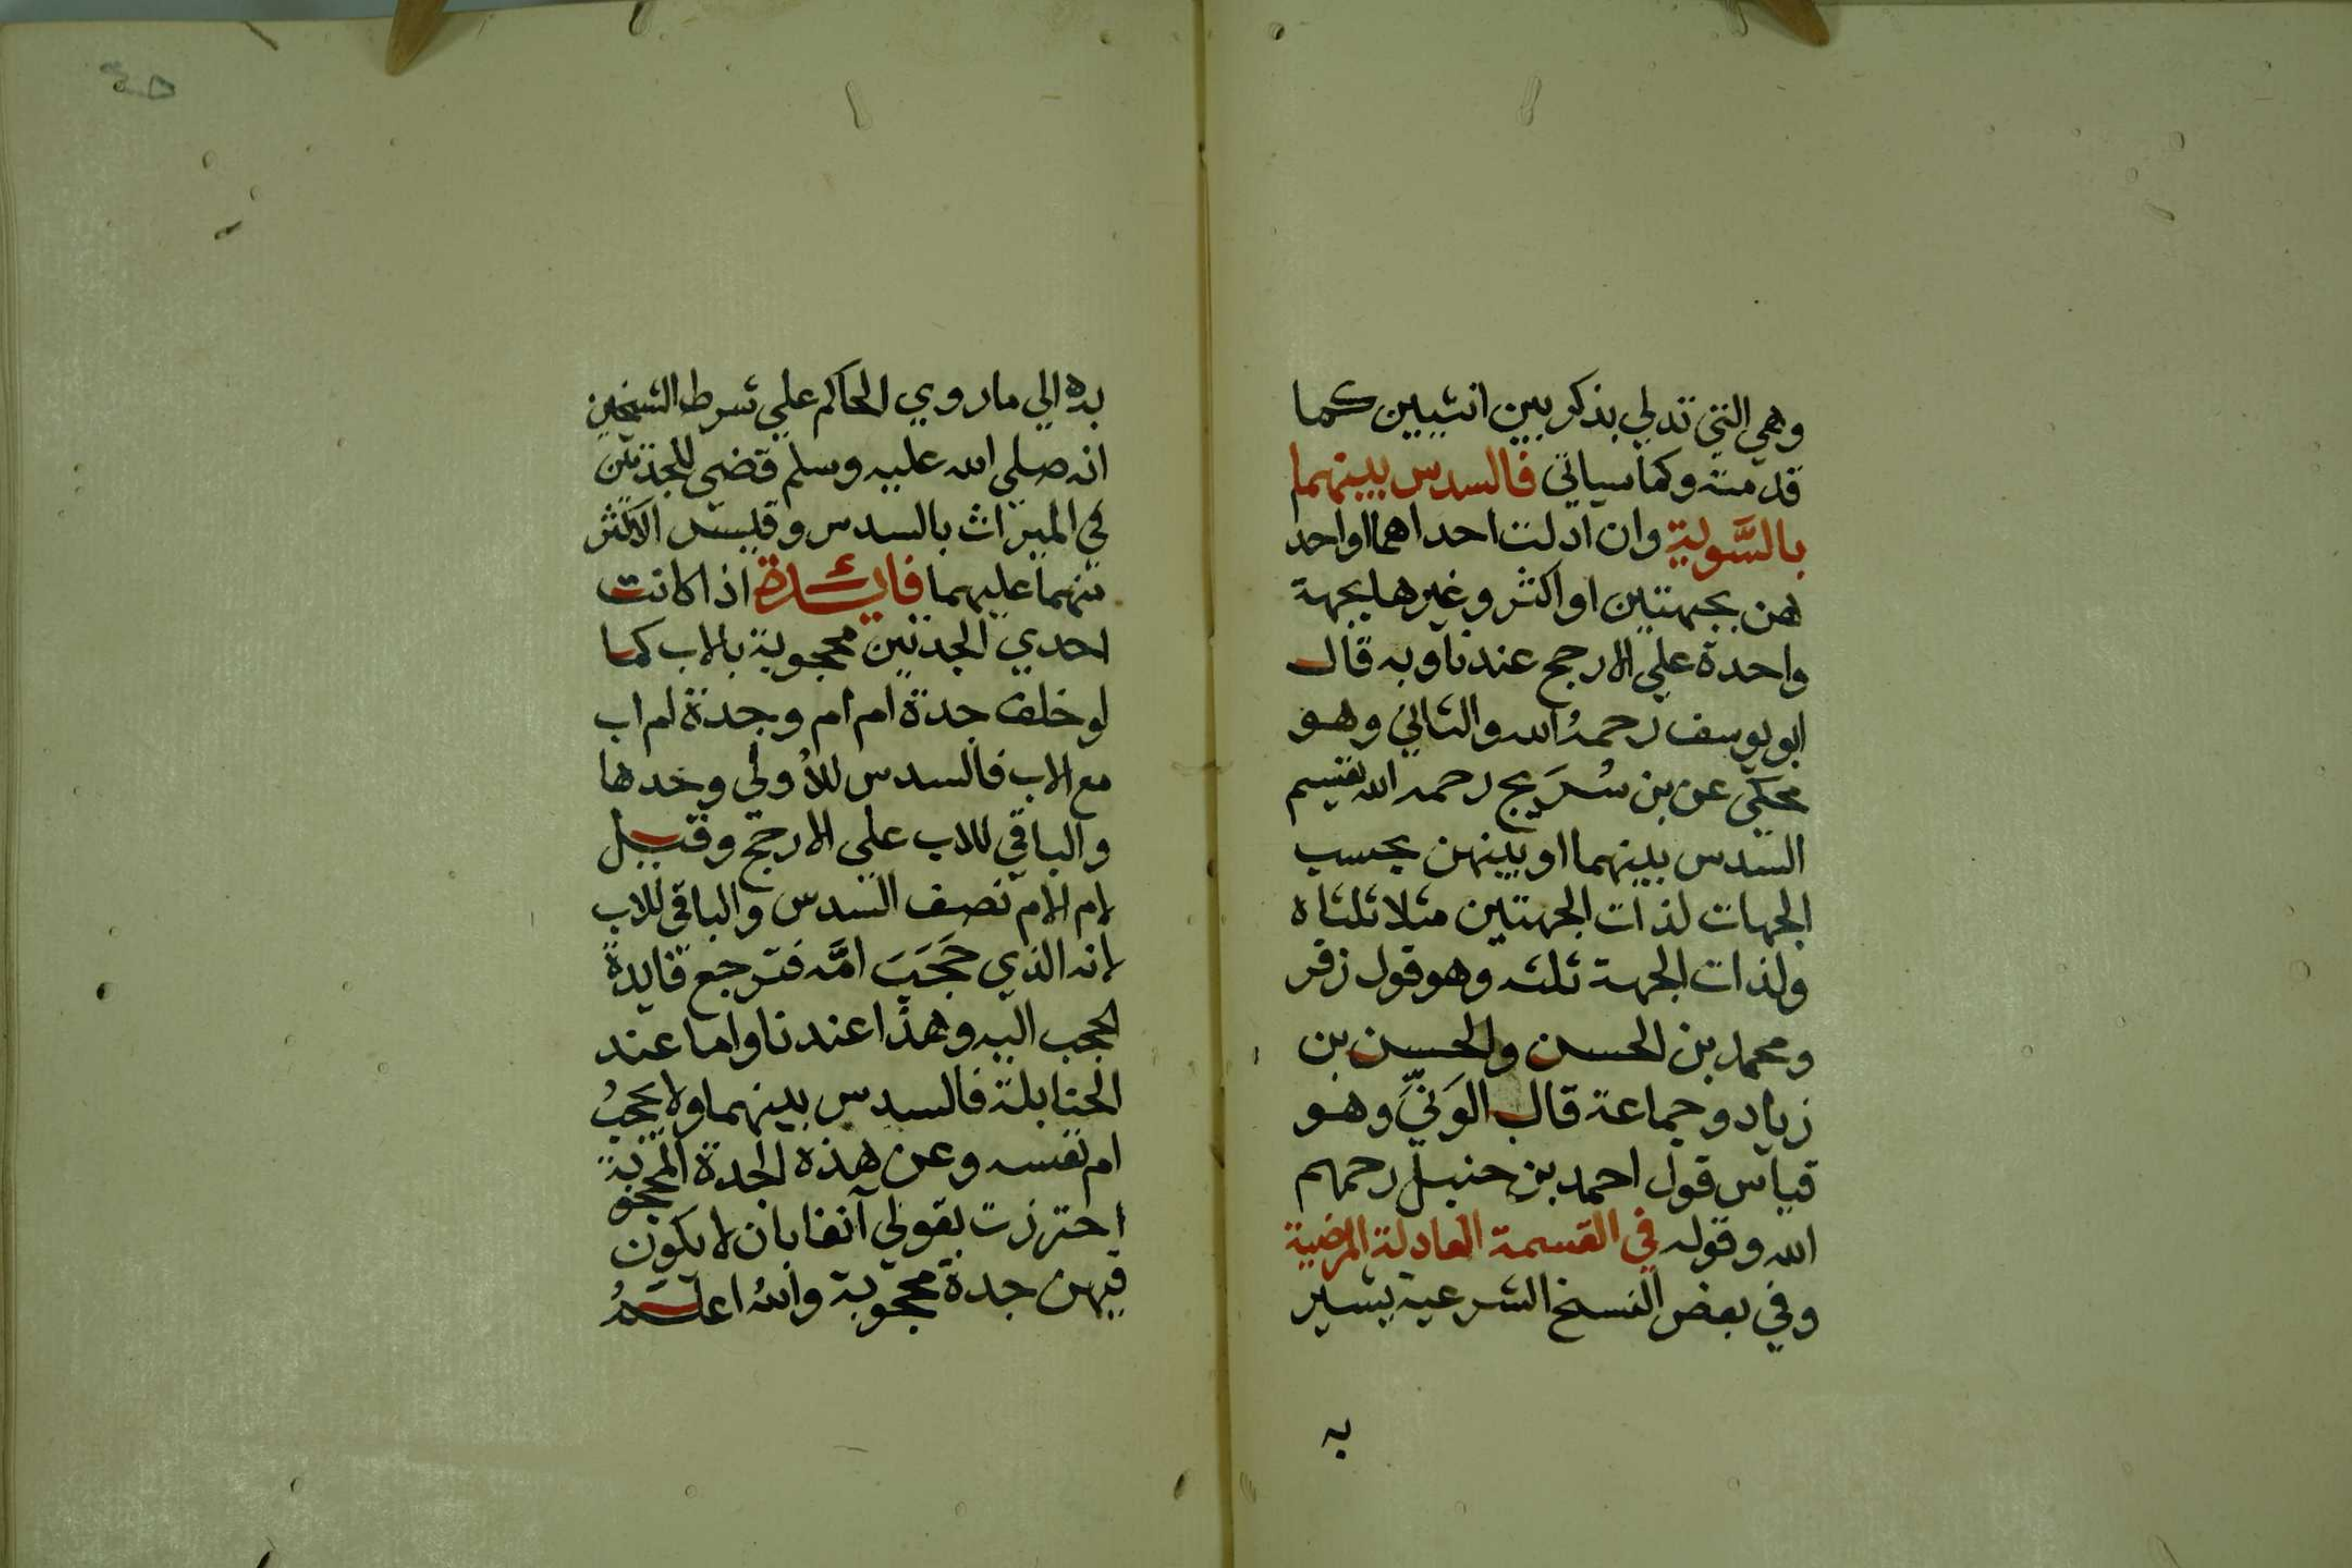 وهي التي تدلي بذكر بين انثيين كما
قدمته وكما سياتي فالسدس بينهما
بالسَّوية وان ادلت احداهما او احد
هن بجهتين او اكثر وغيرها بجهة
واحدة علي الارجح عندنا وبه قال
ابو يوسف رحمهُ الله والثاني وهو
محكي عن بن سُرَيج رحمه الله يقسم
السدس بينهما او بينهن بحسب
الجهات لذات الجهتين مثلا ثلثاه
ولذات الجهة ثلثه وهو قول زفر
ومحمد بن الحسن والحسن بن
زياد وجماعة قال الوَنّيِ وهو
قياس قول احمد بن حنبل رحمهم
الله وقوله في القسمة العادلة المرضية
وفي بعض النسخ الشرعية يشير
به
به الي ما روي الحاكم علي شرط الشيخين
انه صلي الله عليه وسلم قضي للجدتين
في الميراث بالسدس وقيس الاكثر
منهما عليهما فائدة اذا كانت
احدي الجدتين محجوبة بالاب كما
لو خلف جدة ام ام وجدة ام اب
مع الاب فالسدس للأُولي وحدها
والباقي للاب علي الارجح وقيل
لام الام نصف السدس والباقي للاب
لانه الذي حَجَبَ امَّه فترجع فايدة
الحجب اليه وهذا عندنا واما عند
الحنابلة فالسدس بينهما ولا يحجبُ
ام نفسه وعن هذه الجدة المحجوبة
احترزت بقولي آنفا بان لا يكون
فيهن جدة محجوبة واللهُ اعلمُ